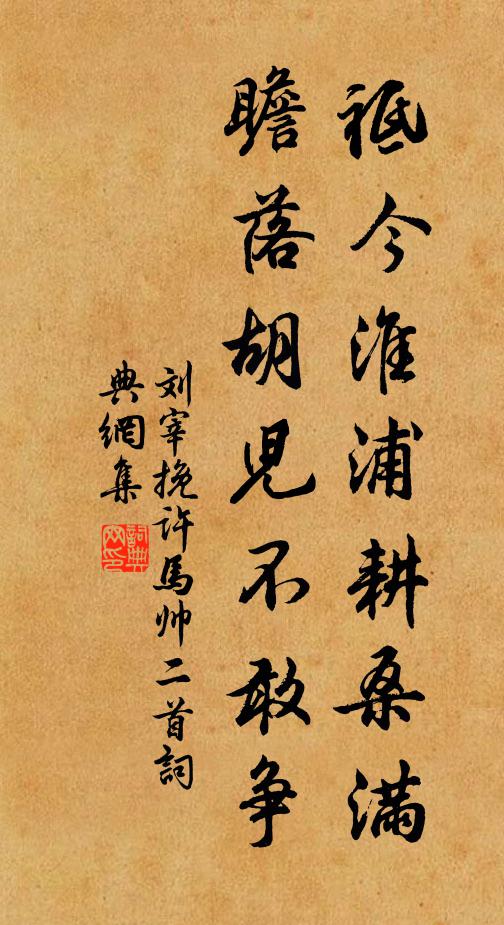 祗今淮浦耕桑满
瞻落胡児不敢争
刘宰挽许馬帅二首詞
典網集
詞典网印